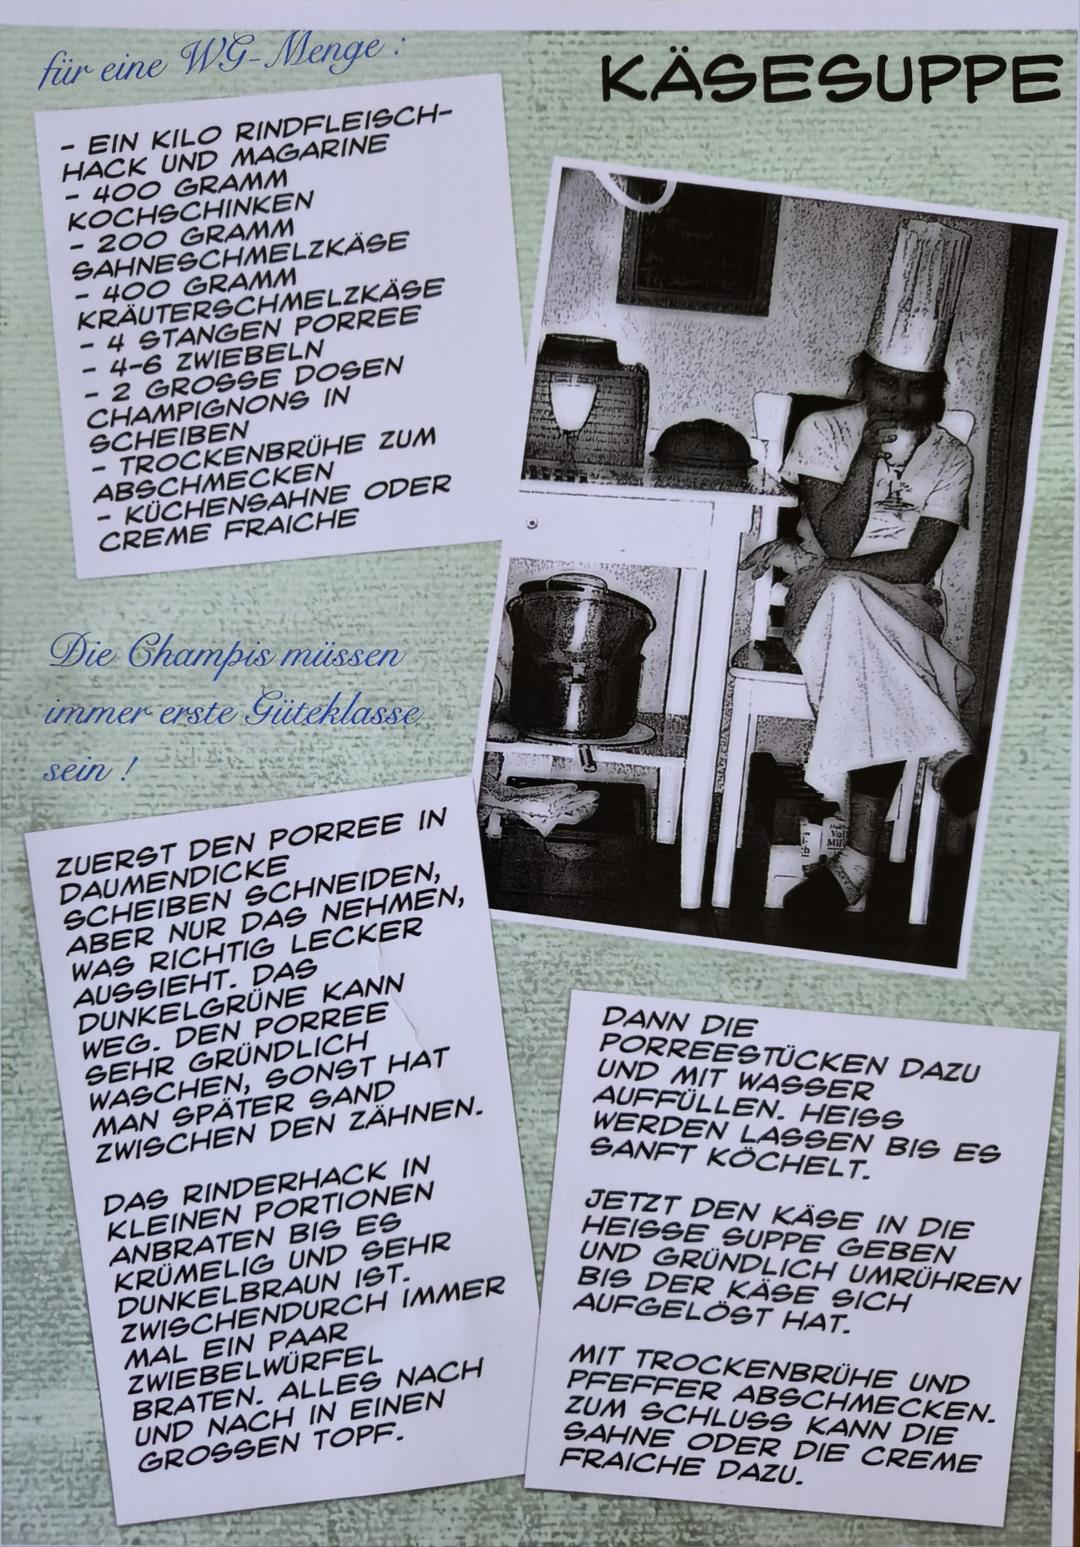 für eine WG-Menge :
KÄSESUPPE
- EIN KILO RINDFLEISCH-
HACK UND MAGARINE
- 400 GRAMM
KOCHSCHINKEN
- 200 GRAMM
SAHNESCHMELZKÄSE
- 400 GRAMM
KRÄUTERSCHMELZKÄSE
- 4 STANGEN PORREE
- 4-6 ZWIEBELN
- 2 GROSSE DOSEN
CHAMPIGNONS IN
SCHEIBEN
- TROCKENBRÜHE ZUM
ABSCHMECKEN
- KÜCHENSAHNE ODER
CREME FRAICHE
Die Champis müssen
immer erste Güteklasse
sein !
ZUERST DEN PORREE IN
DAUMENDICKE
SCHEIBEN SCHNEIDEN,
ABER NUR DAS NEHMEN,
WAS RICHTIG LECKER
AUSSIEHT. DAS
DUNKELGRÜNE KANN
WEG. DEN PORREE
SEHR GRÜNDLICH
WASCHEN, SONST HAT
MAN SPÄTER SAND
ZWISCHEN DEN ZÄHNEN.
DAS RINDERHACK IN
KLEINEN PORTIONEN
ANBRATEN BIS ES
KRÜMELIG UND SEHR
DUNKELBRAUN IST.
ZWISCHENDURCH IMMER
MAL EIN PAAR
ZWIEBELWÜRFEL
BRATEN. ALLES NACH
UND NACH IN EINEN
GROSSEN TOPF.
DANN DIE
PORREESTÜCKEN DAZU
UND MIT WASSER
AUFFÜLLEN. HEISS
WERDEN LASSEN BIS ES
SANFT KÖCHELT.
JETZT DEN KÄSE IN DIE
HEISSE SUPPE GEBEN
UND GRÜNDLICH UMRÜHREN
BIS DER KÄSE SICH
AUFGELÖST HAT.
MIT TROCKENBRÜHE UND
PFEFFER ABSCHMECKEN.
ZUM SCHLUSS KANN DIE
SAHNE ODER DIE CREME
FRAICHE DAZU.